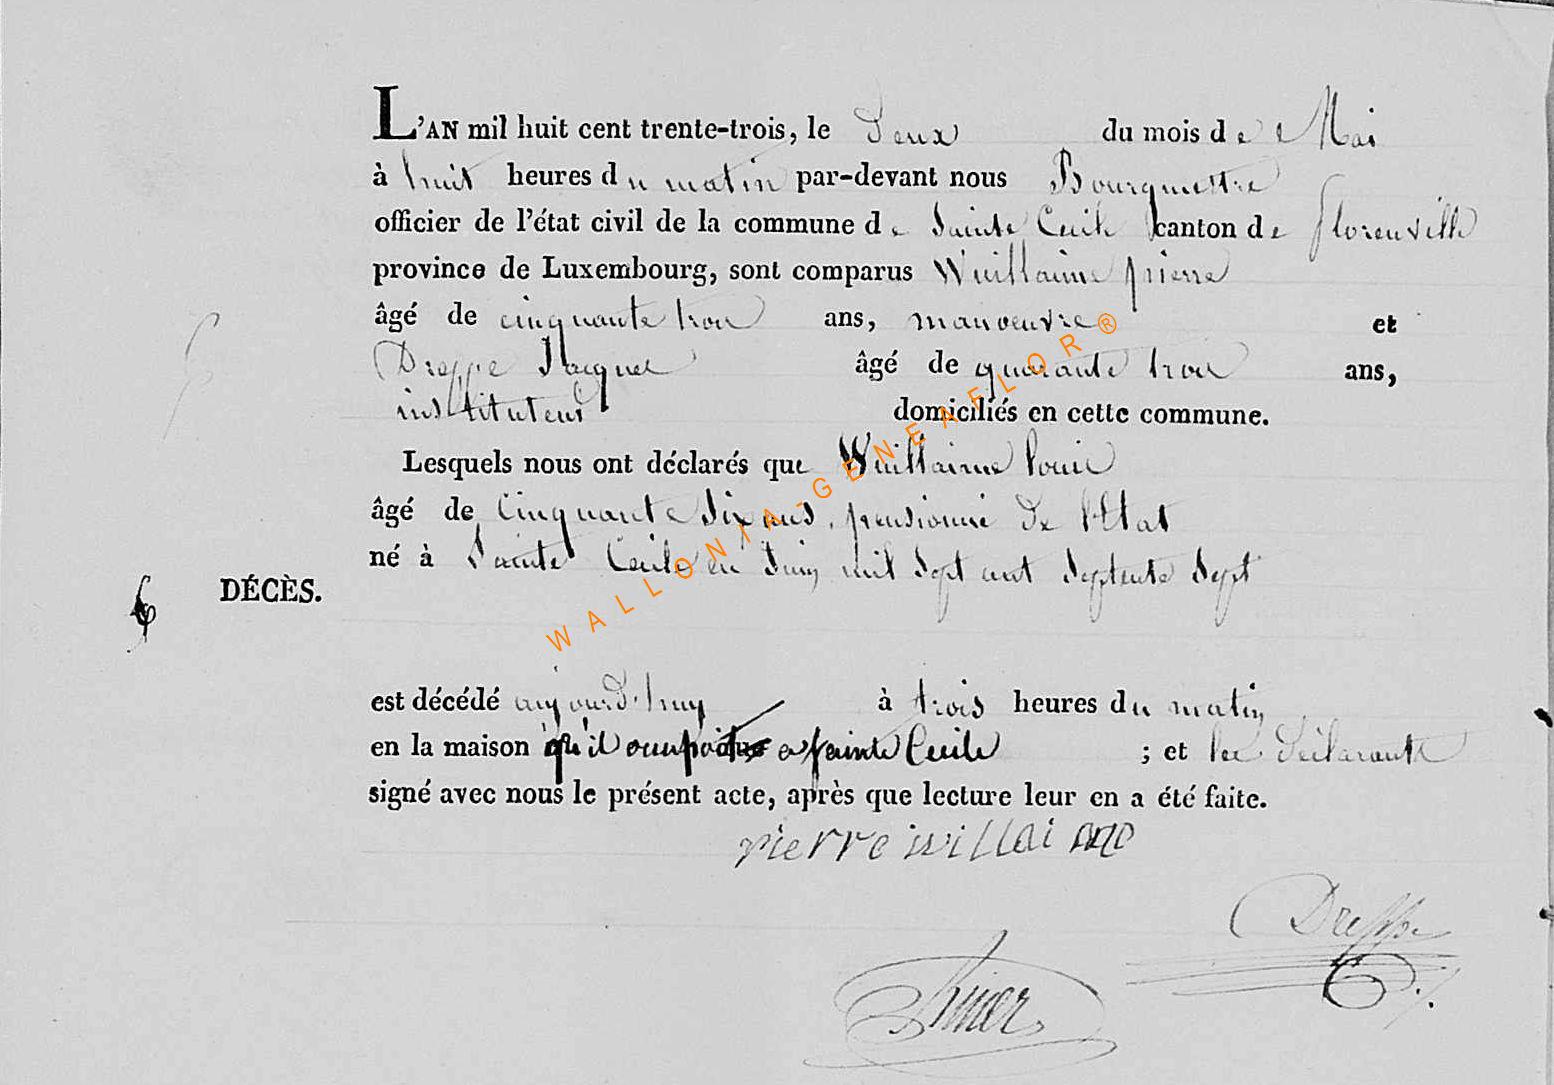 L'AN mil huit cent trente-trois, le Deux du mois de Mai
à huit heures du matin par-devant nous Bourguestre
officier de l'état civil de la commune de Sainte Cecile canton de florenville
province de Luxembourg, sont comparus Wuillaime pierre
âgé de cinquante trois ans, manoeuvre et
Dreppe Jacques âgé de quarante trois ans,
instituteur domiciliés en cette commune.
Lesquels nous ont déclarés que Wuillaime Louis
âgé de Cinquante Six ans, pensionné de l'Etat
né à Sainte Cecile en Juin mil Sept cent Septente Sept
6 DÉCÈS.
est décédé aujourd'huy à trois heures du matin
en la maison qu'il occupoit a sainte Cecile ; et les déclarants
signé avec nous le présent acte, après que lecture leur en a été faite.
pierre willaime
Dreppe
WALLONIA-GENEAFLOR®